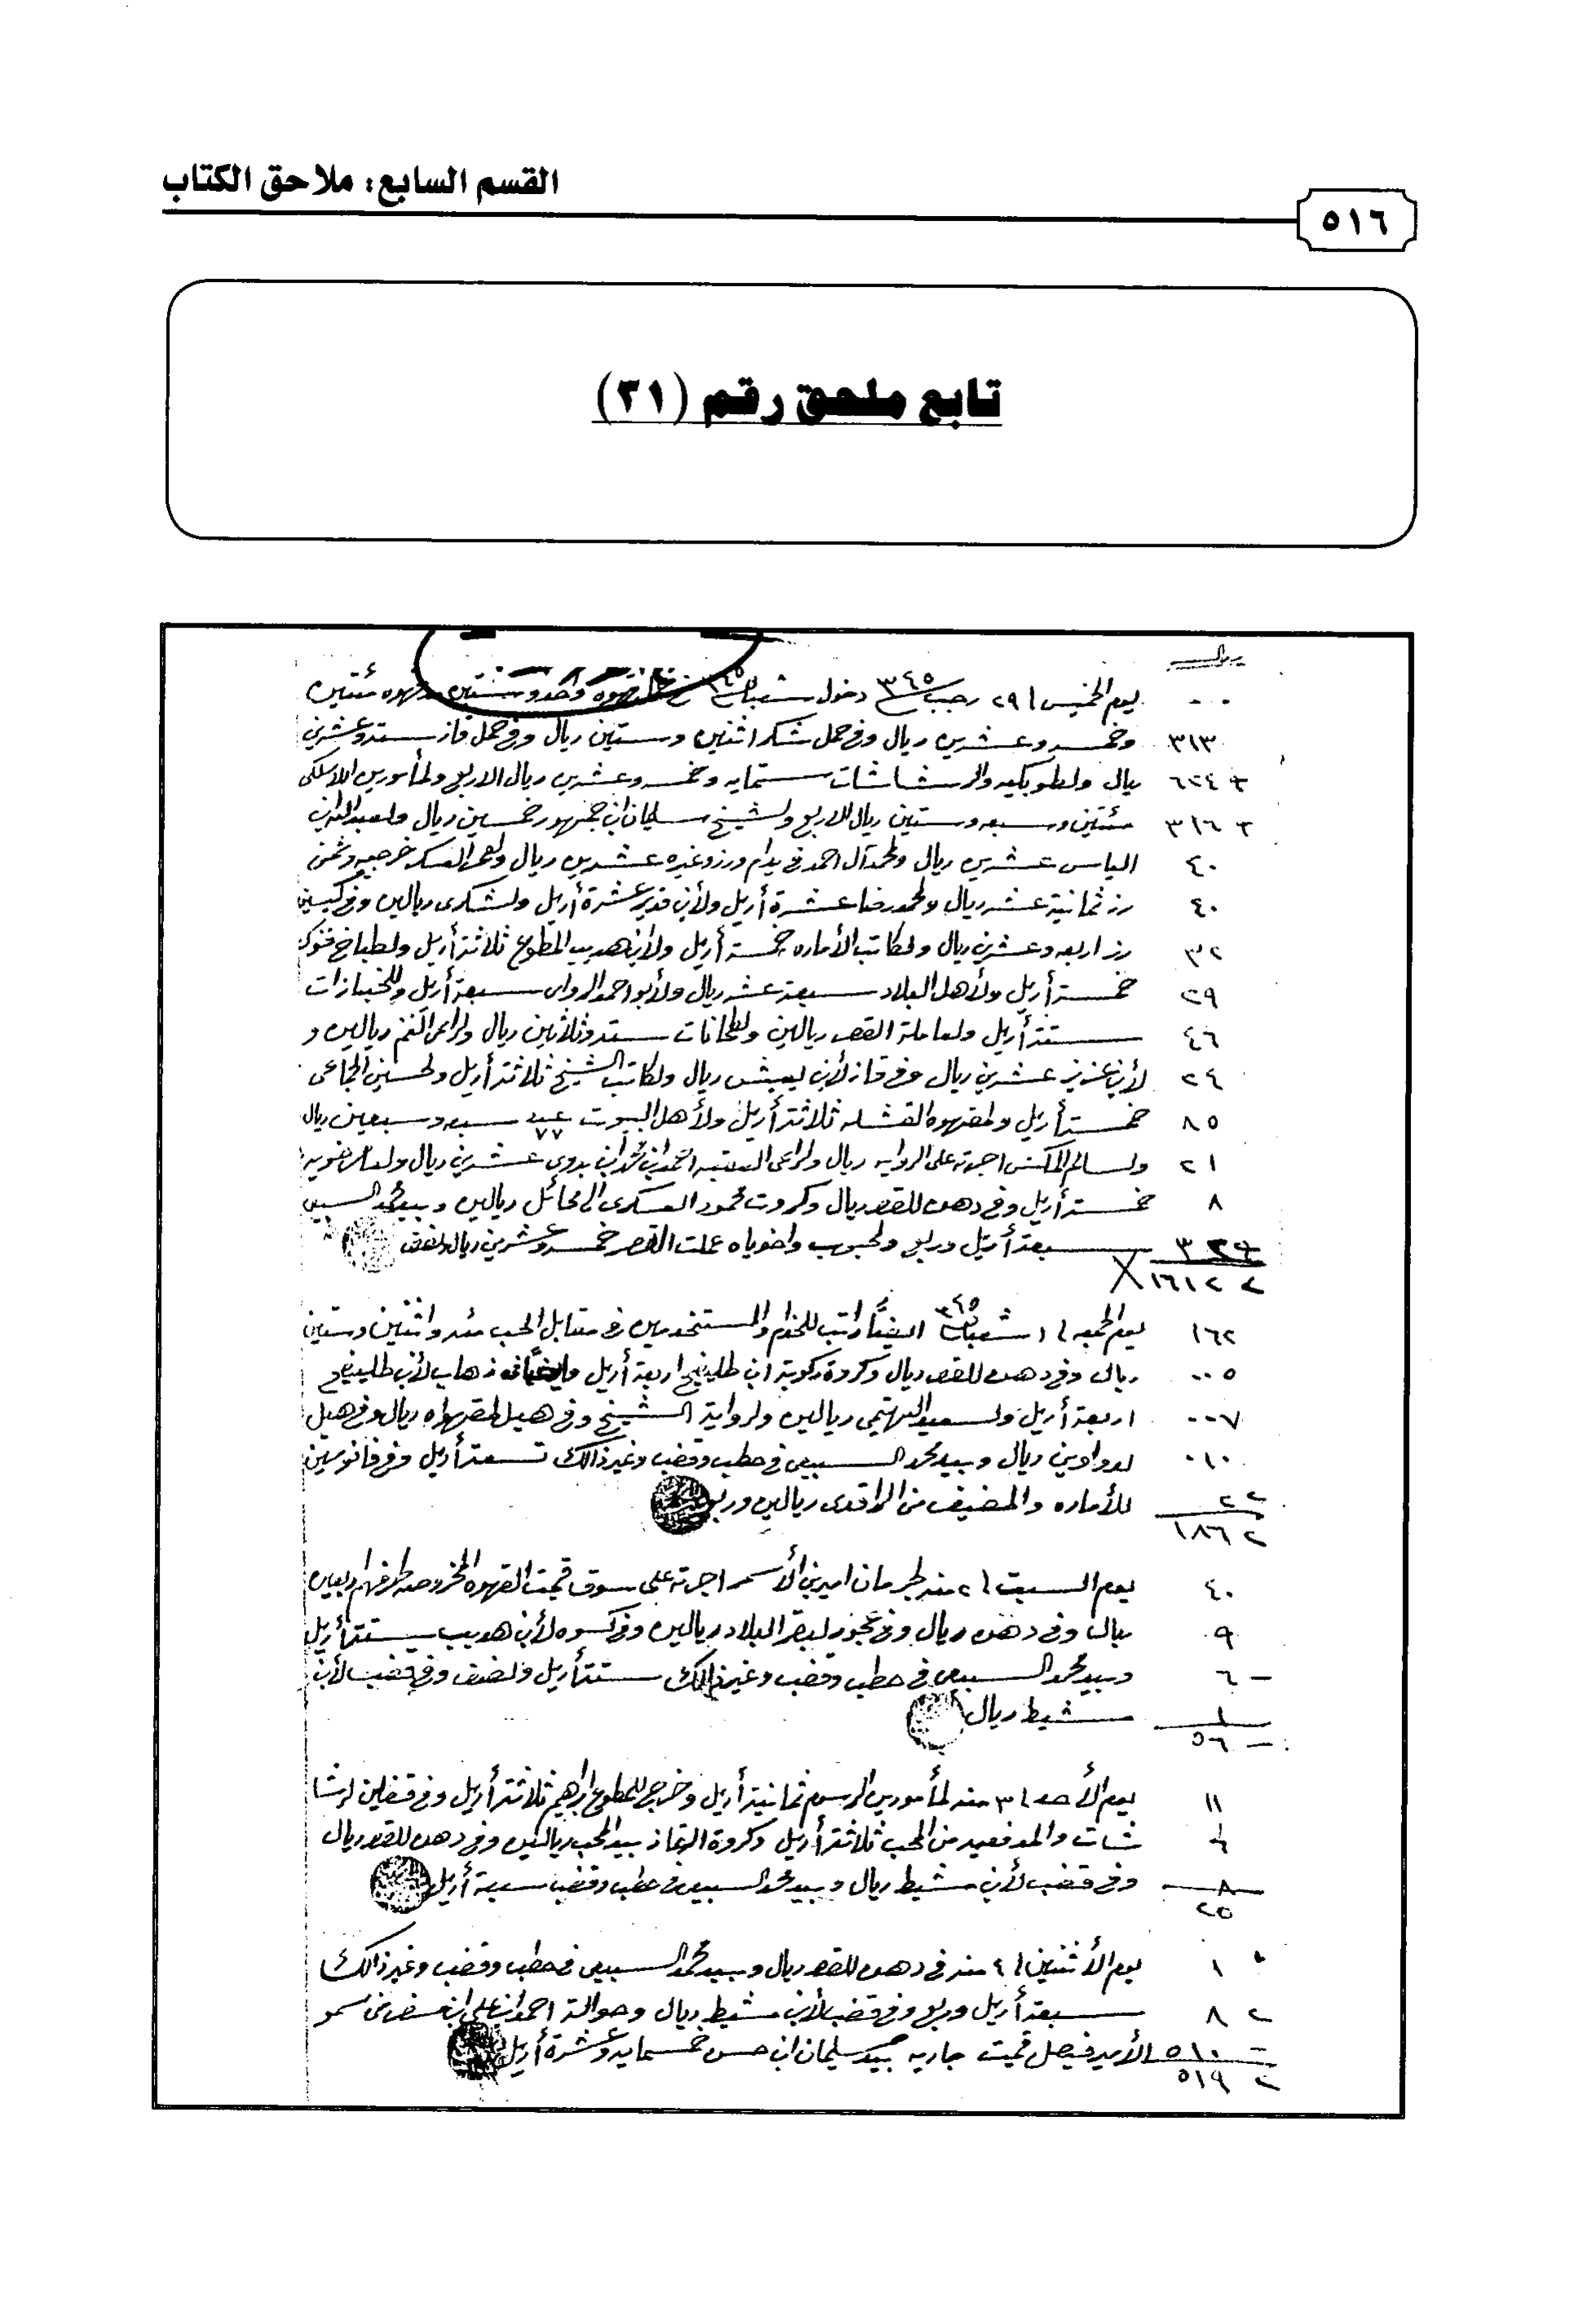 القسم السابع: ملاحق الكتاب
٥١٦
تابع ملحق رقم (٣١)
ريال
٠٠ يوم الخميس ٢٩ رجب ٣٤٥ دخول شعبان ٣٤٥ قهوه واحد وستين قهوه مئتين
٣١٣ وخمسه وعشرين ريال وفي حمل شكر اثنين وستين ريال وفي حمل قاز سته وعشرين
ريال ولطوبكيه والرشاشات ستمايه وخمسه وعشرين ريال الاربع ولمأمورين اللاسلكي
٣١٦ ٣ مئتين وسبعه وستين ريال الاربع ولشيخ سليمان ابن جمهور خمسين ريال ولعبدالله ابن
٤٠ الياس عشرين ريال ولمحمد آل احمد في يدام ورز وغيره عشرين ريال العسكر خرجيه وثمن
٤٠ رز ثمانية عشر ريال ولمحمد رضا عشرة أريل ولأبن قدير عشرة أريل ولشكري ريالين وفي كيسين
٣٢ رز اربعه وعشرين ريال ولكاتب الأماره خمسة أريل ولابن هديب المطوع ثلاثة أريل ولطباخ
٢٩ خمسة أريل ولأهل البلاد سبعة عشر ريال ولأبو احمد الرواي سبعة أريل وللخبازات
٤٦ ستة أريل ولعاملة القصر ريالين ولطحانات سته وثلاثين ريال ولراعي الغنم ريالين و
٢٤ لأبن عزيز عشرين ريال وفي قاز لأبن يعيش ريال ولكاتب الشيخ ثلاثة أريل ولحسين الجماعي
٨٥ خمسة أريل ولمقهوه القشله ثلاثة أريل ولأهل البيوت ٧٧ سبعه وسبعين ريال
٢١ ولسالم اجرته على الروايه ريال ولراعي احمد ابن محمد ابن بدوي عشرين ريال
٨ خمسة أريل وفي دهن للقصر ريال وكروت محمود العسكري الى محائل ريالين وبيد محمد السبيعي
سبعة أريل وربع ولمحبوب واخوياه عملت القصر خمسه وعشرين ريال ونصف
١٦١٢ ٢
١٦٢ يوم الجمعه ١ شعبان ٣٤٥ ايضًا راتب للخدام والمستخدمين في مقابل الحب مئه واثنين وستين
٠٠٥ ريال وفي دهن للقصر ريال وكروة ركوبة ابن طلينيح اربعة أريل ذهاب لأبن طلينيح
٠٠٧ اربعة أريل ولسعيد ريالين ولرواية الشيخ وفي هيل لمقهواه ريال وفي هيل
٠١٠ لدواوين ريال وبيد محمد السبيعي في حطب وقضب وغير ذالك تسعة أريل وفي فانوسين
٢٢ للأماره والمضيف من الواقدي ريالين وربع
١٨٦ ٢
٤٠ يوم السبت ٢ منه لجرمان امير بني الأسمر اجرته على سوق قيمت القهوه اربعين
٩ ريال وفي دهن ريال وفي عجور لبقر البلاد ريالين وفي كسوه لأبن هديب ستة أريل
٦ – وبيد محمد السبيعي في حطب وقضب وغير ذالك ستة أريل ونصف وفي قضب لأبن
١ مشيط ريال
٥٦ –
١١ يوم الأحد ٣ منه لمأمورين الرسوم ثمانية أريل وخرج للمطوع ابراهيم ثلاثة أريل وفي قفلين لرشا
٦ شات والمدفعيه من المحب ثلاثة أريل وكروة بيد المحب ريالين وفي دهن للقصر ريال
٨ وفي قضب لأبن مشيط ريال وبيد محمد السبيعي في حطب وقضب سبعة أريل
٢٥
١ يوم الأثنين ٤ منه في دهن للقصر ريال وبيد محمد السبيعي في حطب وقضب وغير ذالك
٨ ٢ سبعة أريل وربع وفي قضب لأبن مشيط ريال وحوالة احمد ابن علي ابن من سمو
٥١٠ – الأمير فيصل قيمت جاريه بيد سليمان ابن حسن خمسمايه وعشرة أريل
٥١٩ ٢